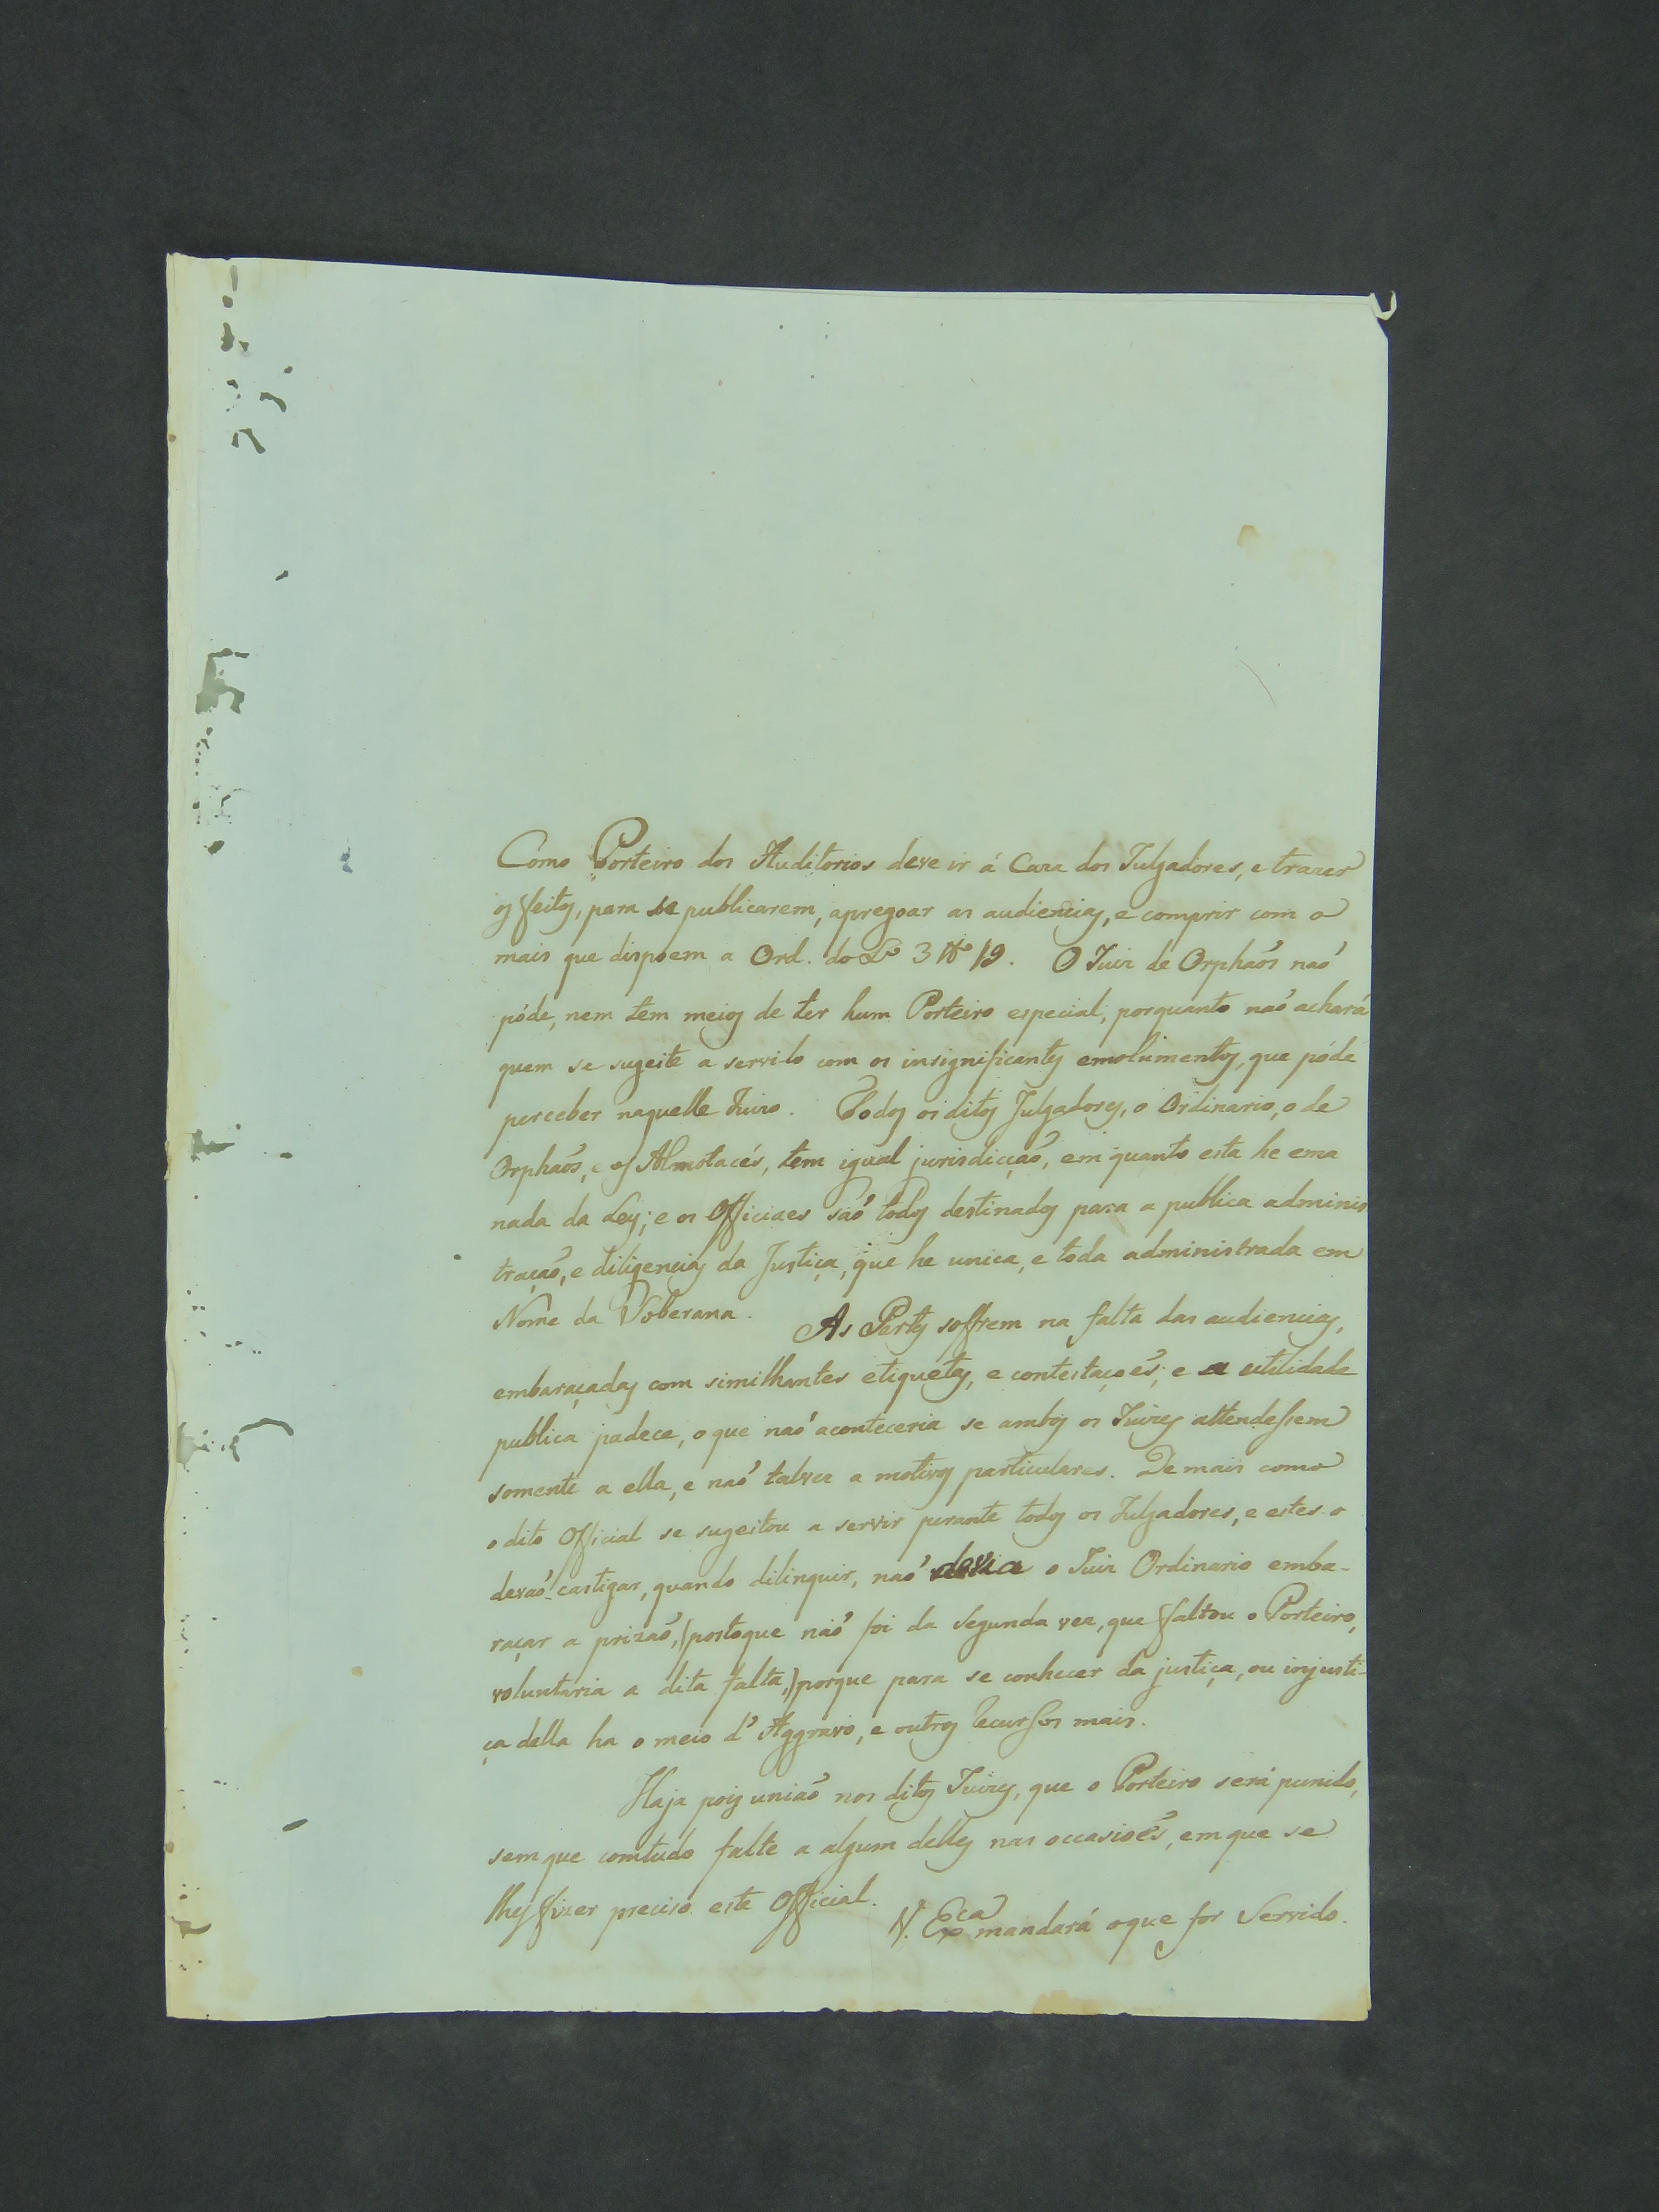 Como Porteiro dos Auditorios deve ir á Caza dos Julgadores, e trazer
os feitos, para se publicarem, apregoar as audiencias, e comprir com o
mais que dispoem a Ord. do Lº 3 ttº 19. O Juiz de Orphaõs naõ
póde, nem tem meios de ter hum Porteiro especial, porquanto naõ achará
quem se sugeite a servilo com os insignificantes emolumentos, que póde
perceber naquelle Juizo. Todos os ditos Julgadores, o Ordinario, o de
Orphaõs, e os Almotacés, tem igual jurisdicçaõ, em quanto esta he ema
nada da Ley; e os Officiaes saõ todos destinados para a publica adminis
traçaõ, e diligencias da Justiça, que he unica, e toda administrada em
Nome da Soberana. As Partes soffrem na falta das audiencias,
embaraçadas com similhantes etiquetas, e contestaçoẽs; e a utilidade
publica padece, o que naõ aconteceria se ambos os Juizes attendessem
somente a ella, e naõ talvez a motivos particulares. De mais como
o dito Official se sugeitou a servir perante todos os Julgadores, e estes o
devaõ castigar, quando dilinquir, naõ devia o Juiz Ordinario emba-
raçar a prizaõ, (postoque naõ foi da segunda vez, que faltou o Porteiro,
voluntaria a dita falta,) porque para se conhecer da justiça, ou injusti-
ça della ha o meio d' Aggravo, e outros recursos mais.
Haja pois uniaõ nos ditos Juizes, que o Porteiro será punido,
sem que comtudo falte a algum delles nas occasioẽs, em que se
lhes fizer preciso este Official. V. Exca mandará o que for Servido.